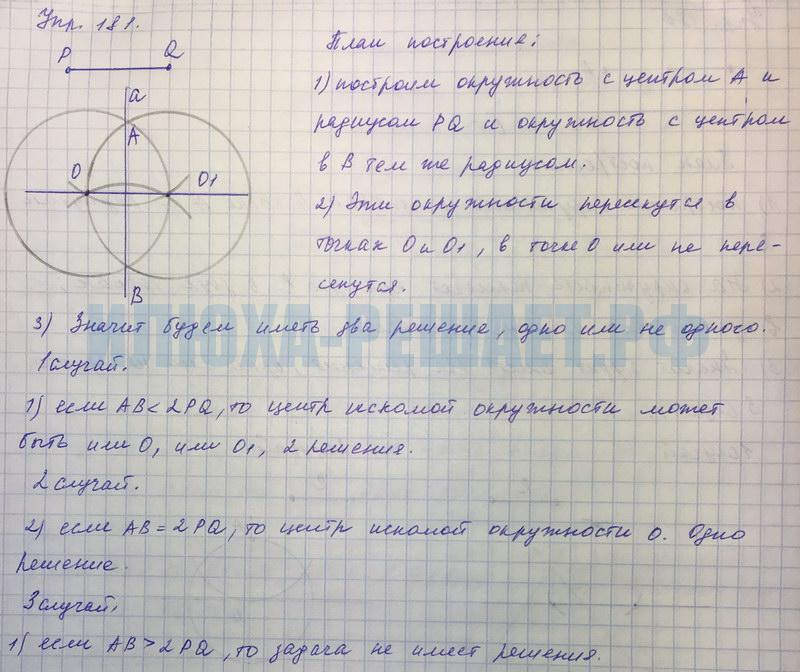 Упр. 181.
P Q
a
A
O O1
B
План построения:
1) построим окружность с центром А и
радиусом PQ и окружность с центром
в В тем же радиусом.
2) Эти окружности пересекутся в
точках О и О1, в точке О или не пере-
секутся.
3) Значит будем иметь два решение, одно или не одного.
1 случай.
1) если АВ < 2PQ, то центр искомой окружности может
быть или О, или О1, 2 решения.
2 случай.
2) если АВ = 2PQ, то центр искомой окружности О. Одно
решение.
3 случай.
1) если АВ > 2PQ, то задача не имеет решения.
ИЛЮХА-РЕШАЕТ.РФ